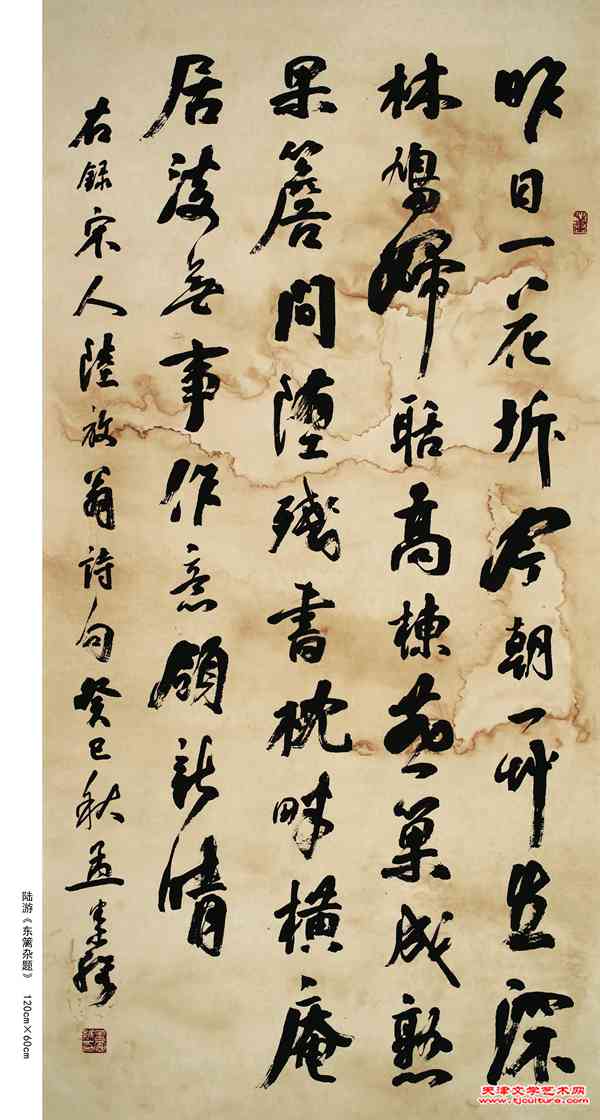 昨日一花坼今朝一艸生深
林鳩婦聒高棟燕巢成熟
果簷間堕殘書枕畔橫庵
居無事作意領新晴
右録宋人陸放翁詩句癸巳秋孟
陆游《东篱杂题》 120cm×60cm
天津文学艺术网
www.tjculture.com